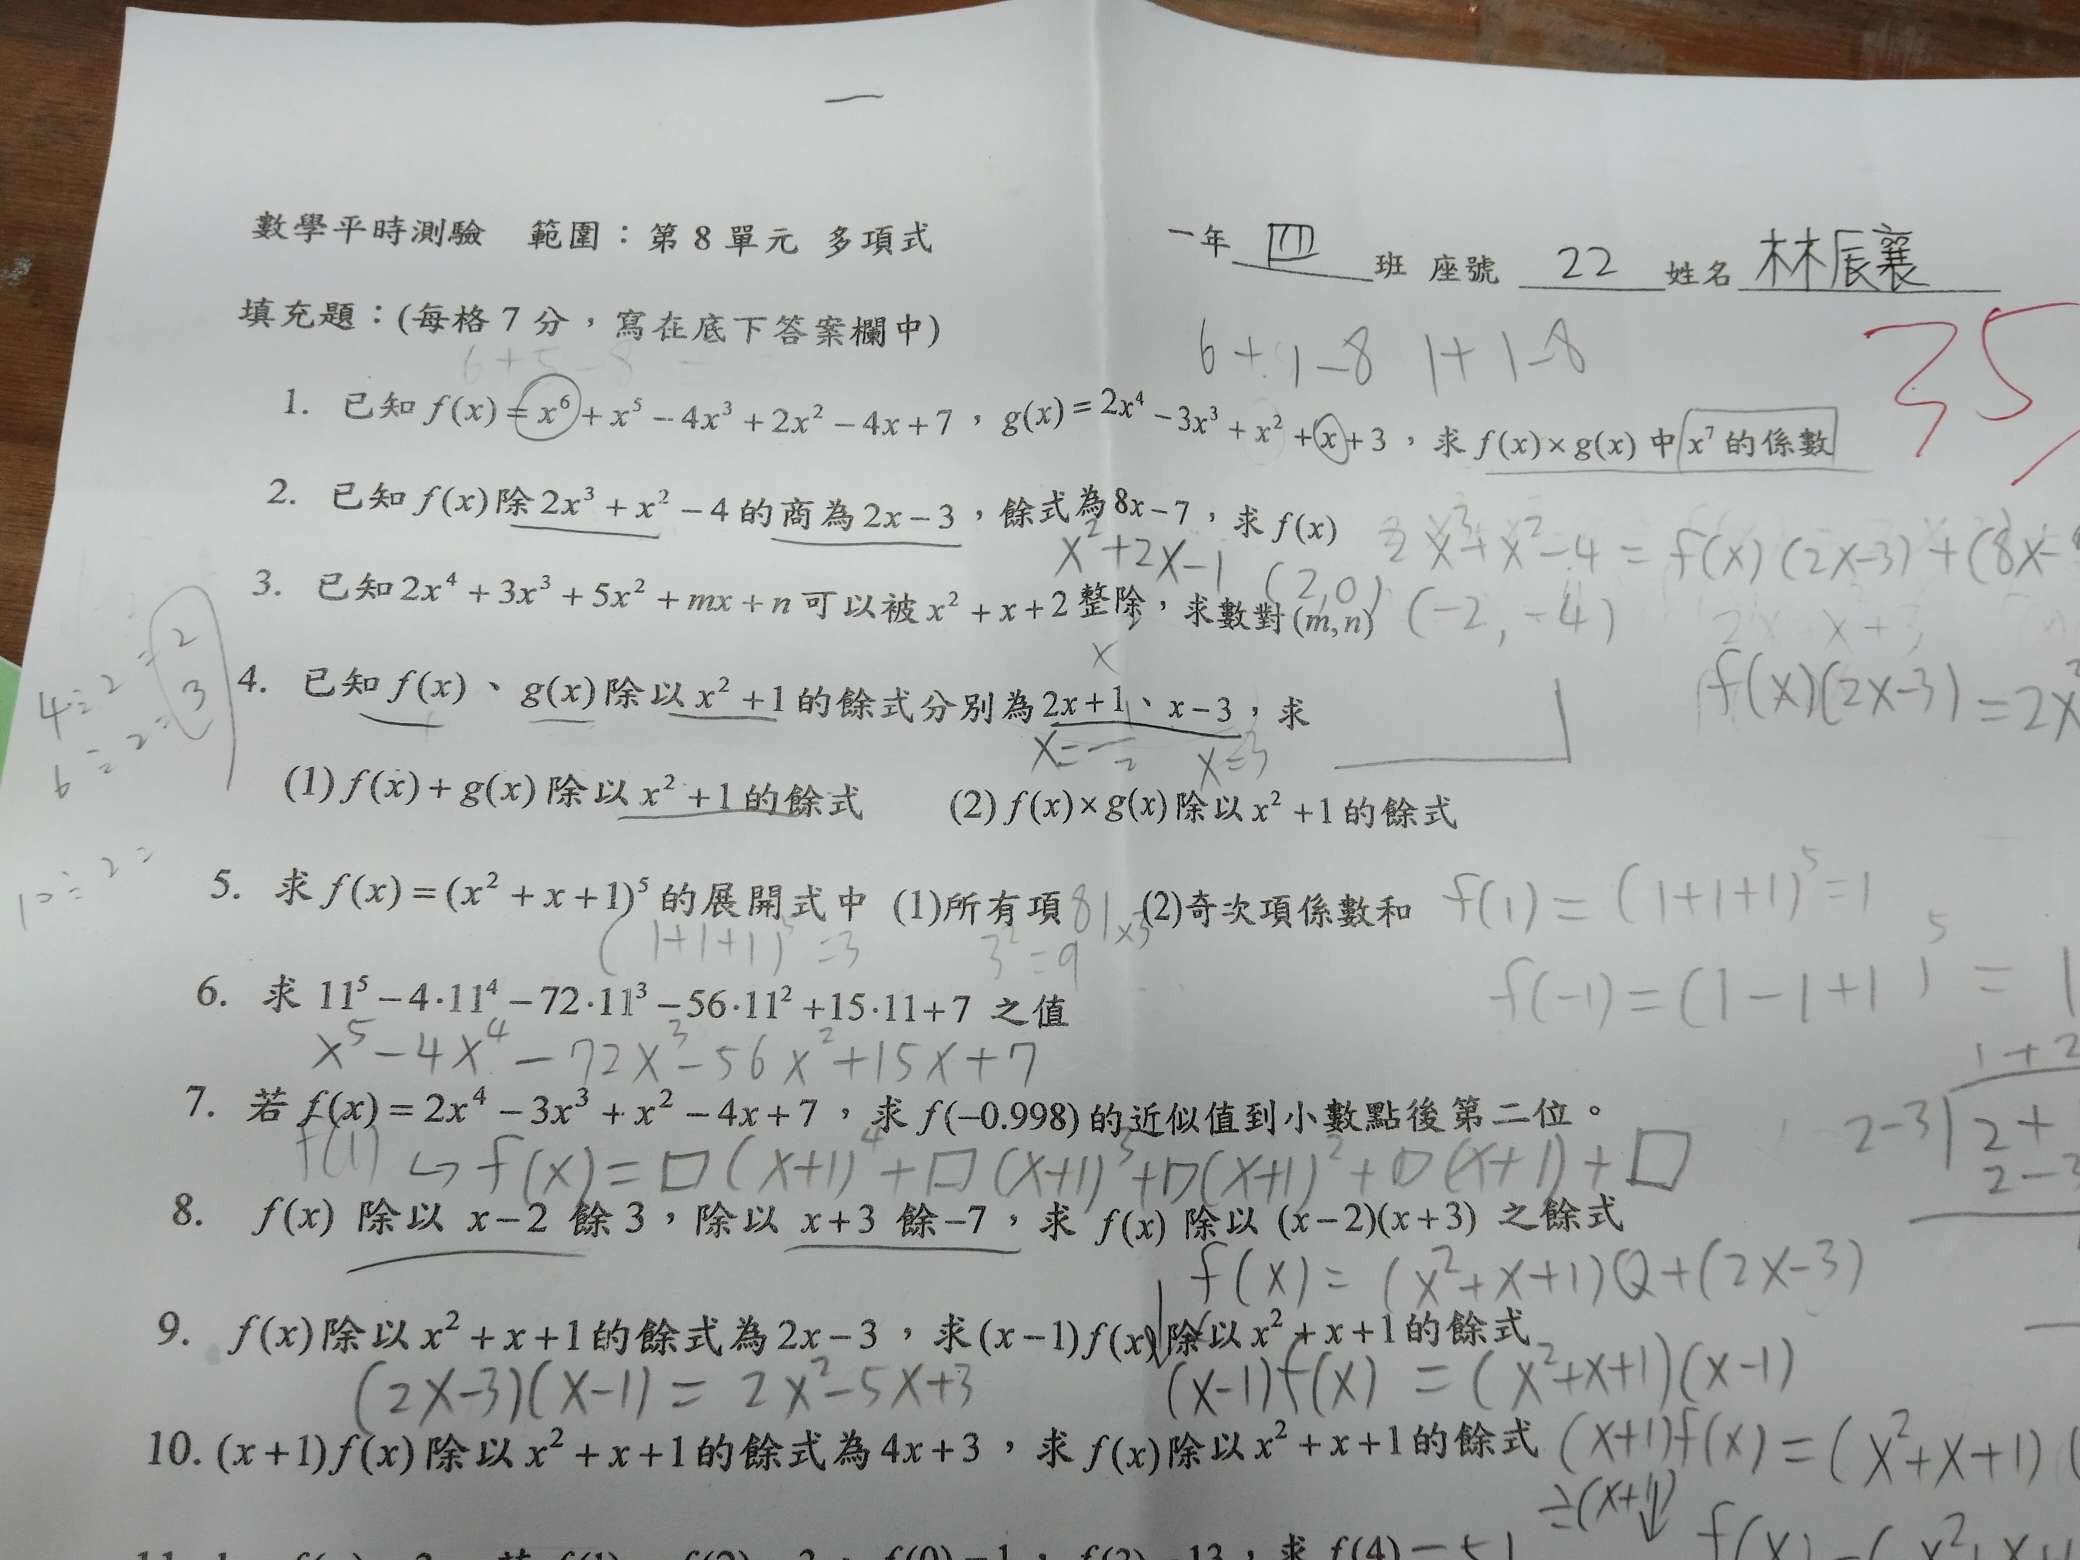 數學平時測驗 範圍：第8單元 多項式
一年 四 班 座號 22 姓名 林辰襄
填充題：(每格7分，寫在底下答案欄中)
35
6+5-8
6+1-8 1+1-8
1. 已知 f(x)=x⁶+x⁵-4x³+2x²-4x+7，g(x)=2x⁴-3x³+x²+x+3，求 f(x)×g(x) 中 x⁷ 的係數
2. 已知 f(x)除2x³+x²-4的商為2x-3，餘式為8x-7，求 f(x)
2x³+x²-4=f(x)(2x-3)+(8x-
x²+2x-1
(2,0)
3. 已知2x⁴+3x³+5x²+mx+n可以被x²+x+2整除，求數對(m,n)
(-2,-4)
f(x)(2x-3)=2x
4÷2=2
6÷2=3
10÷2=
4. 已知 f(x)、g(x)除以x²+1的餘式分別為2x+1、x-3，求
x=3
(1) f(x)+g(x)除以x²+1的餘式 (2) f(x)×g(x)除以x²+1的餘式
5. 求 f(x)=(x²+x+1)⁵的展開式中 (1)所有項 (2)奇次項係數和
81×3
f(1)=(1+1+1)⁵=1
(1+1+1)⁵=3 3²=9
f(-1)=(1-1+1)⁵=1
6. 求 11⁵-4·11⁴-72·11³-56·11²+15·11+7 之值
x⁵-4x⁴-72x³-56x²+15x+7
1+2
2-3)2+
2-3
7. 若 f(x)=2x⁴-3x³+x²-4x+7，求 f(-0.998)的近似值到小數點後第二位。
f(1) ↪ f(x)=□(x+1)⁴+□(x+1)³+□(x+1)²+□(x+1)+□
8. f(x) 除以 x-2 餘3，除以 x+3 餘-7，求 f(x) 除以 (x-2)(x+3) 之餘式
f(x)=(x²+x+1)Q+(2x-3)
9. f(x)除以x²+x+1的餘式為2x-3，求(x-1)f(x)除以x²+x+1的餘式
(2x-3)(x-1)=2x²-5x+3
(x-1)f(x)=(x²+x+1)(x-1)
10. (x+1)f(x)除以x²+x+1的餘式為4x+3，求 f(x)除以x²+x+1的餘式
(x+1)f(x)=(x²+x+1)(
÷(x+1)
求 f(4)